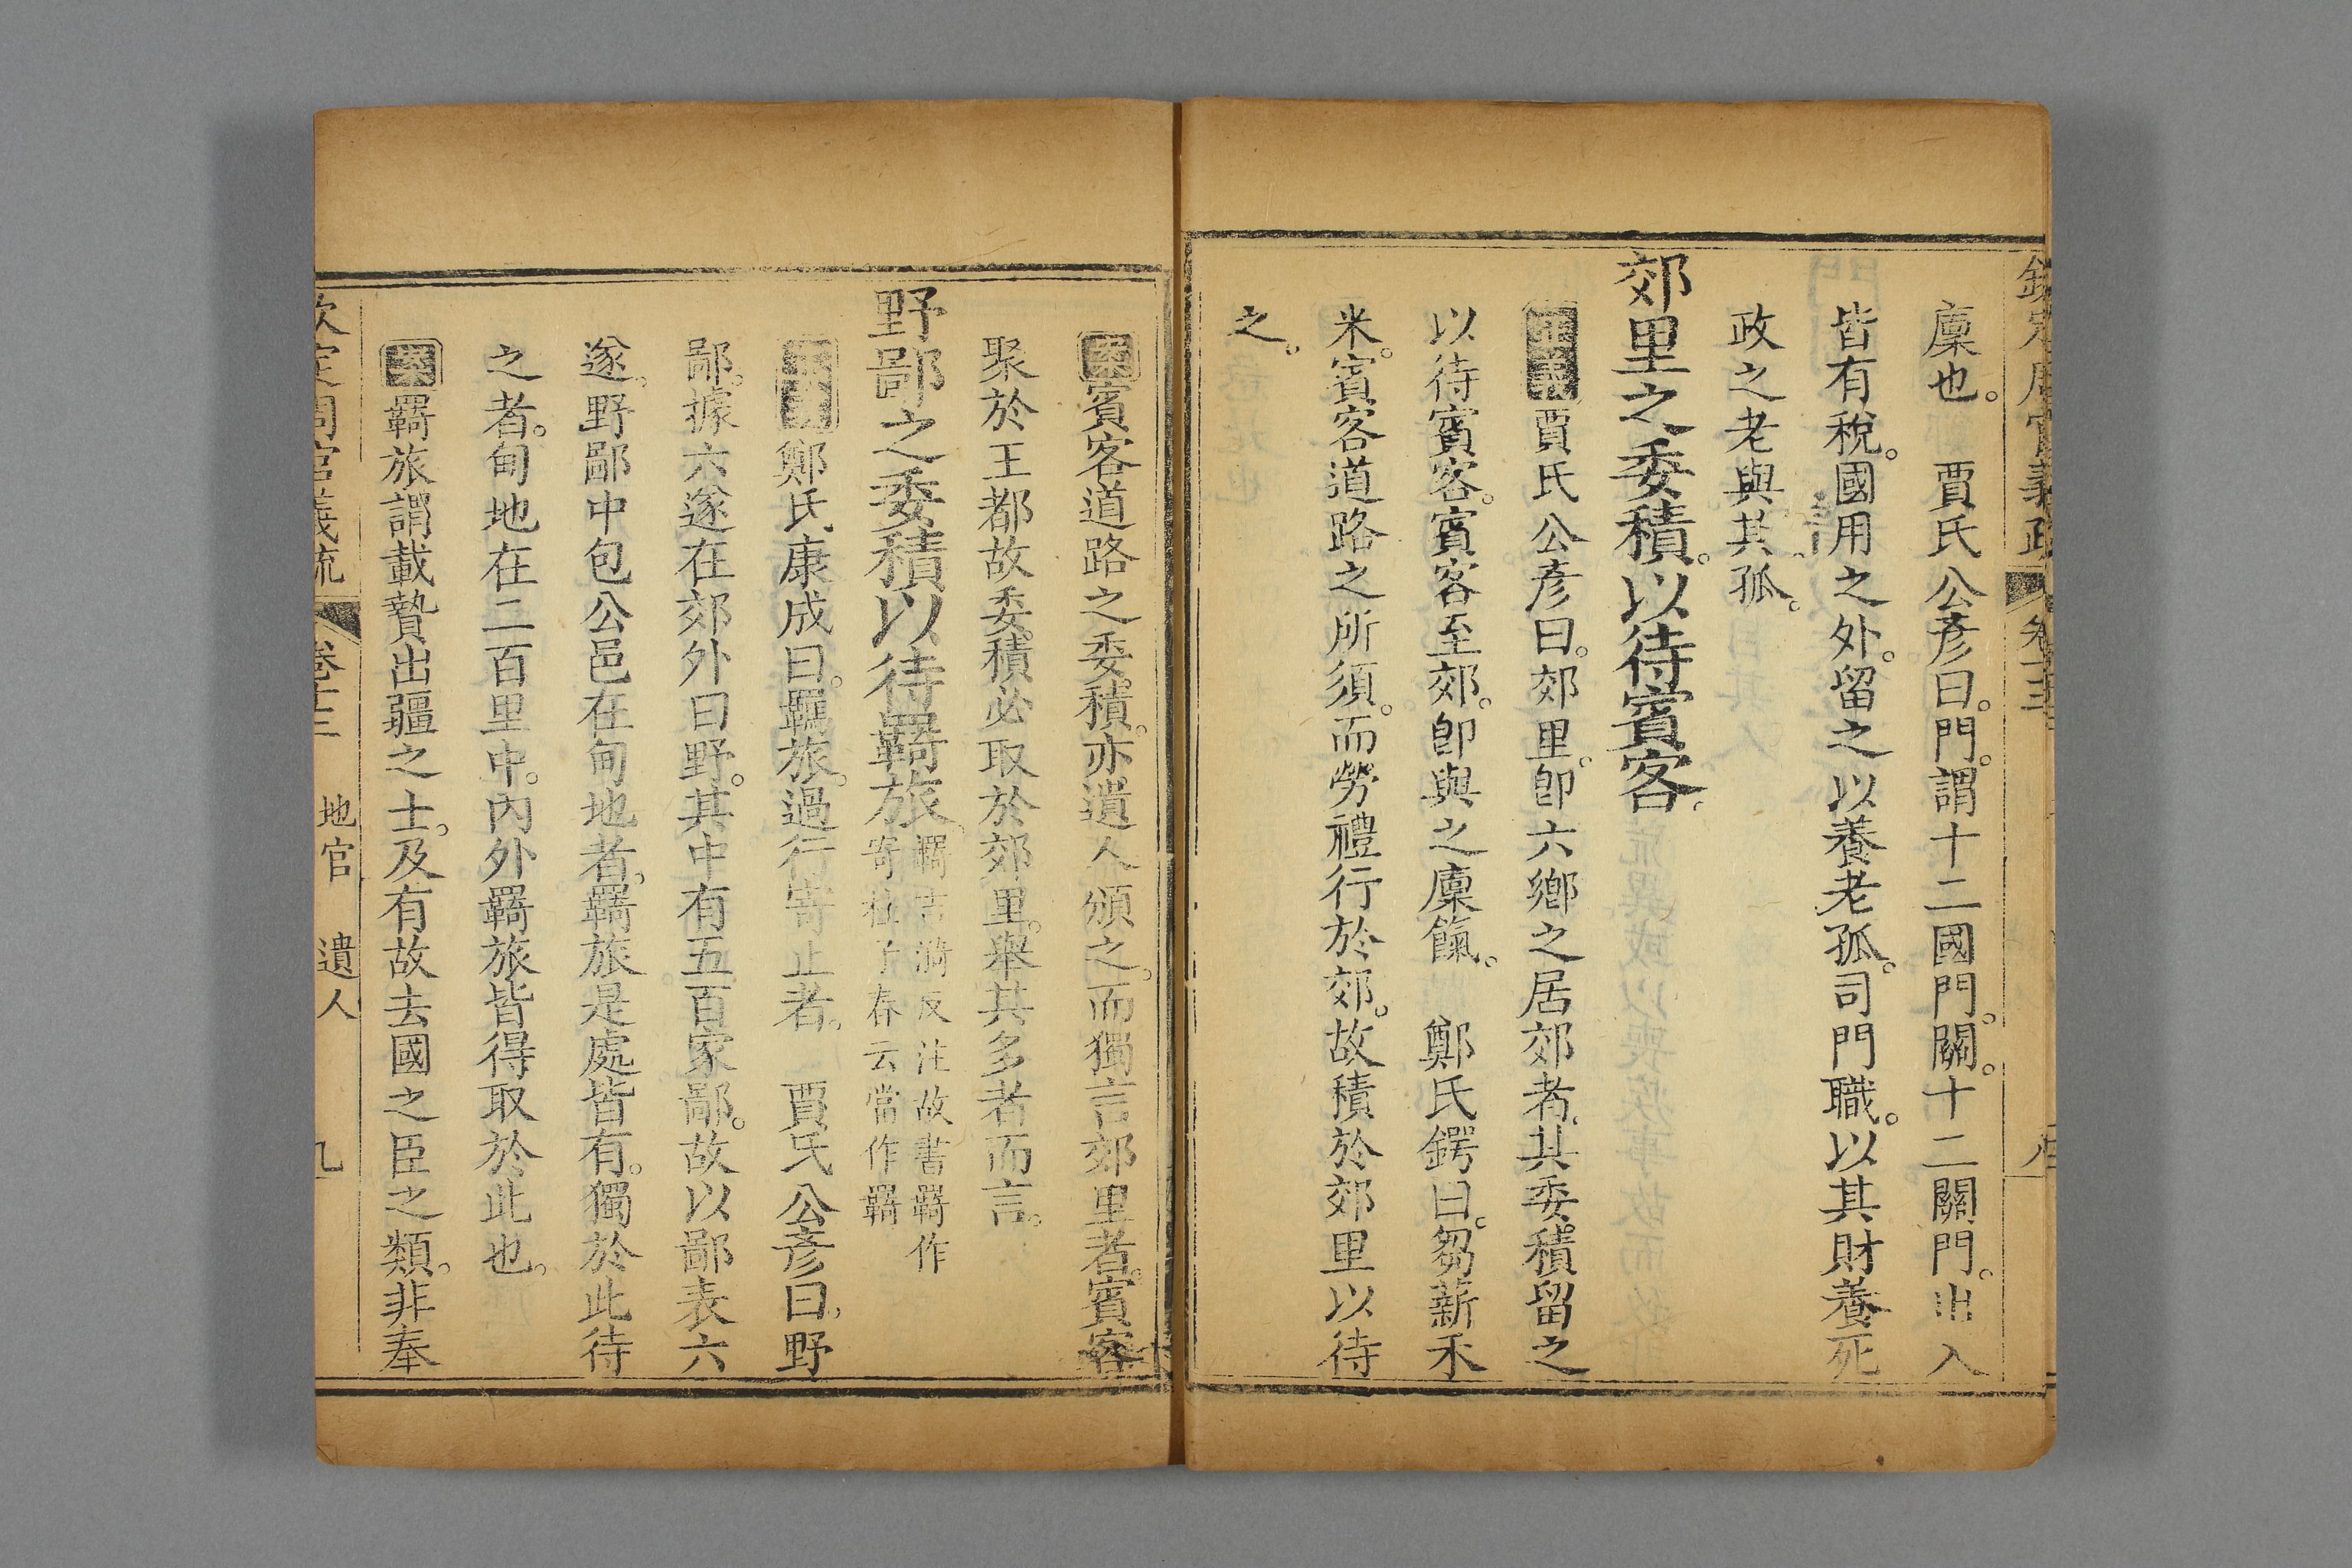 廩也。 賈氏公彥曰。門。謂十二國門。關。十二關門。出入
皆有稅。國用之外。留之以養老孤。司門職。以其財養死
政之老與其孤。
郊里之委積。以待賓客。
正義賈氏公彥曰。郊里。卽六鄉之居郊者。其委積留之
以待賓客。賓客至郊。卽與之廩餼。 鄭氏鍔曰。芻薪禾
米。賓客道路之所須。而勞禮行於郊。故積於郊里以待
之。
案賓客道路之委積。亦遺人頒之。而獨言郊里者。賓客
聚於王都故委積必取於郊里。舉其多者而言。
野鄙之委積以待羇旅
羇 反注故書羇作
寄杜子春云當作羇
鄭氏康成曰。羈旅。過行寄止者。 賈氏公彥曰。野
鄙。據六遂在郊外曰野。其中有五百家鄙。故以鄙表六
遂。野鄙中包公邑在甸地者。羇旅是處皆有。獨於此待
之者。甸地在二百里中。內外羇旅皆得取於此也。
案羇旅謂載贄出疆之士。及有故去國之臣之類。非奉
欽定周官義疏 卷十三 地官 遺人 九